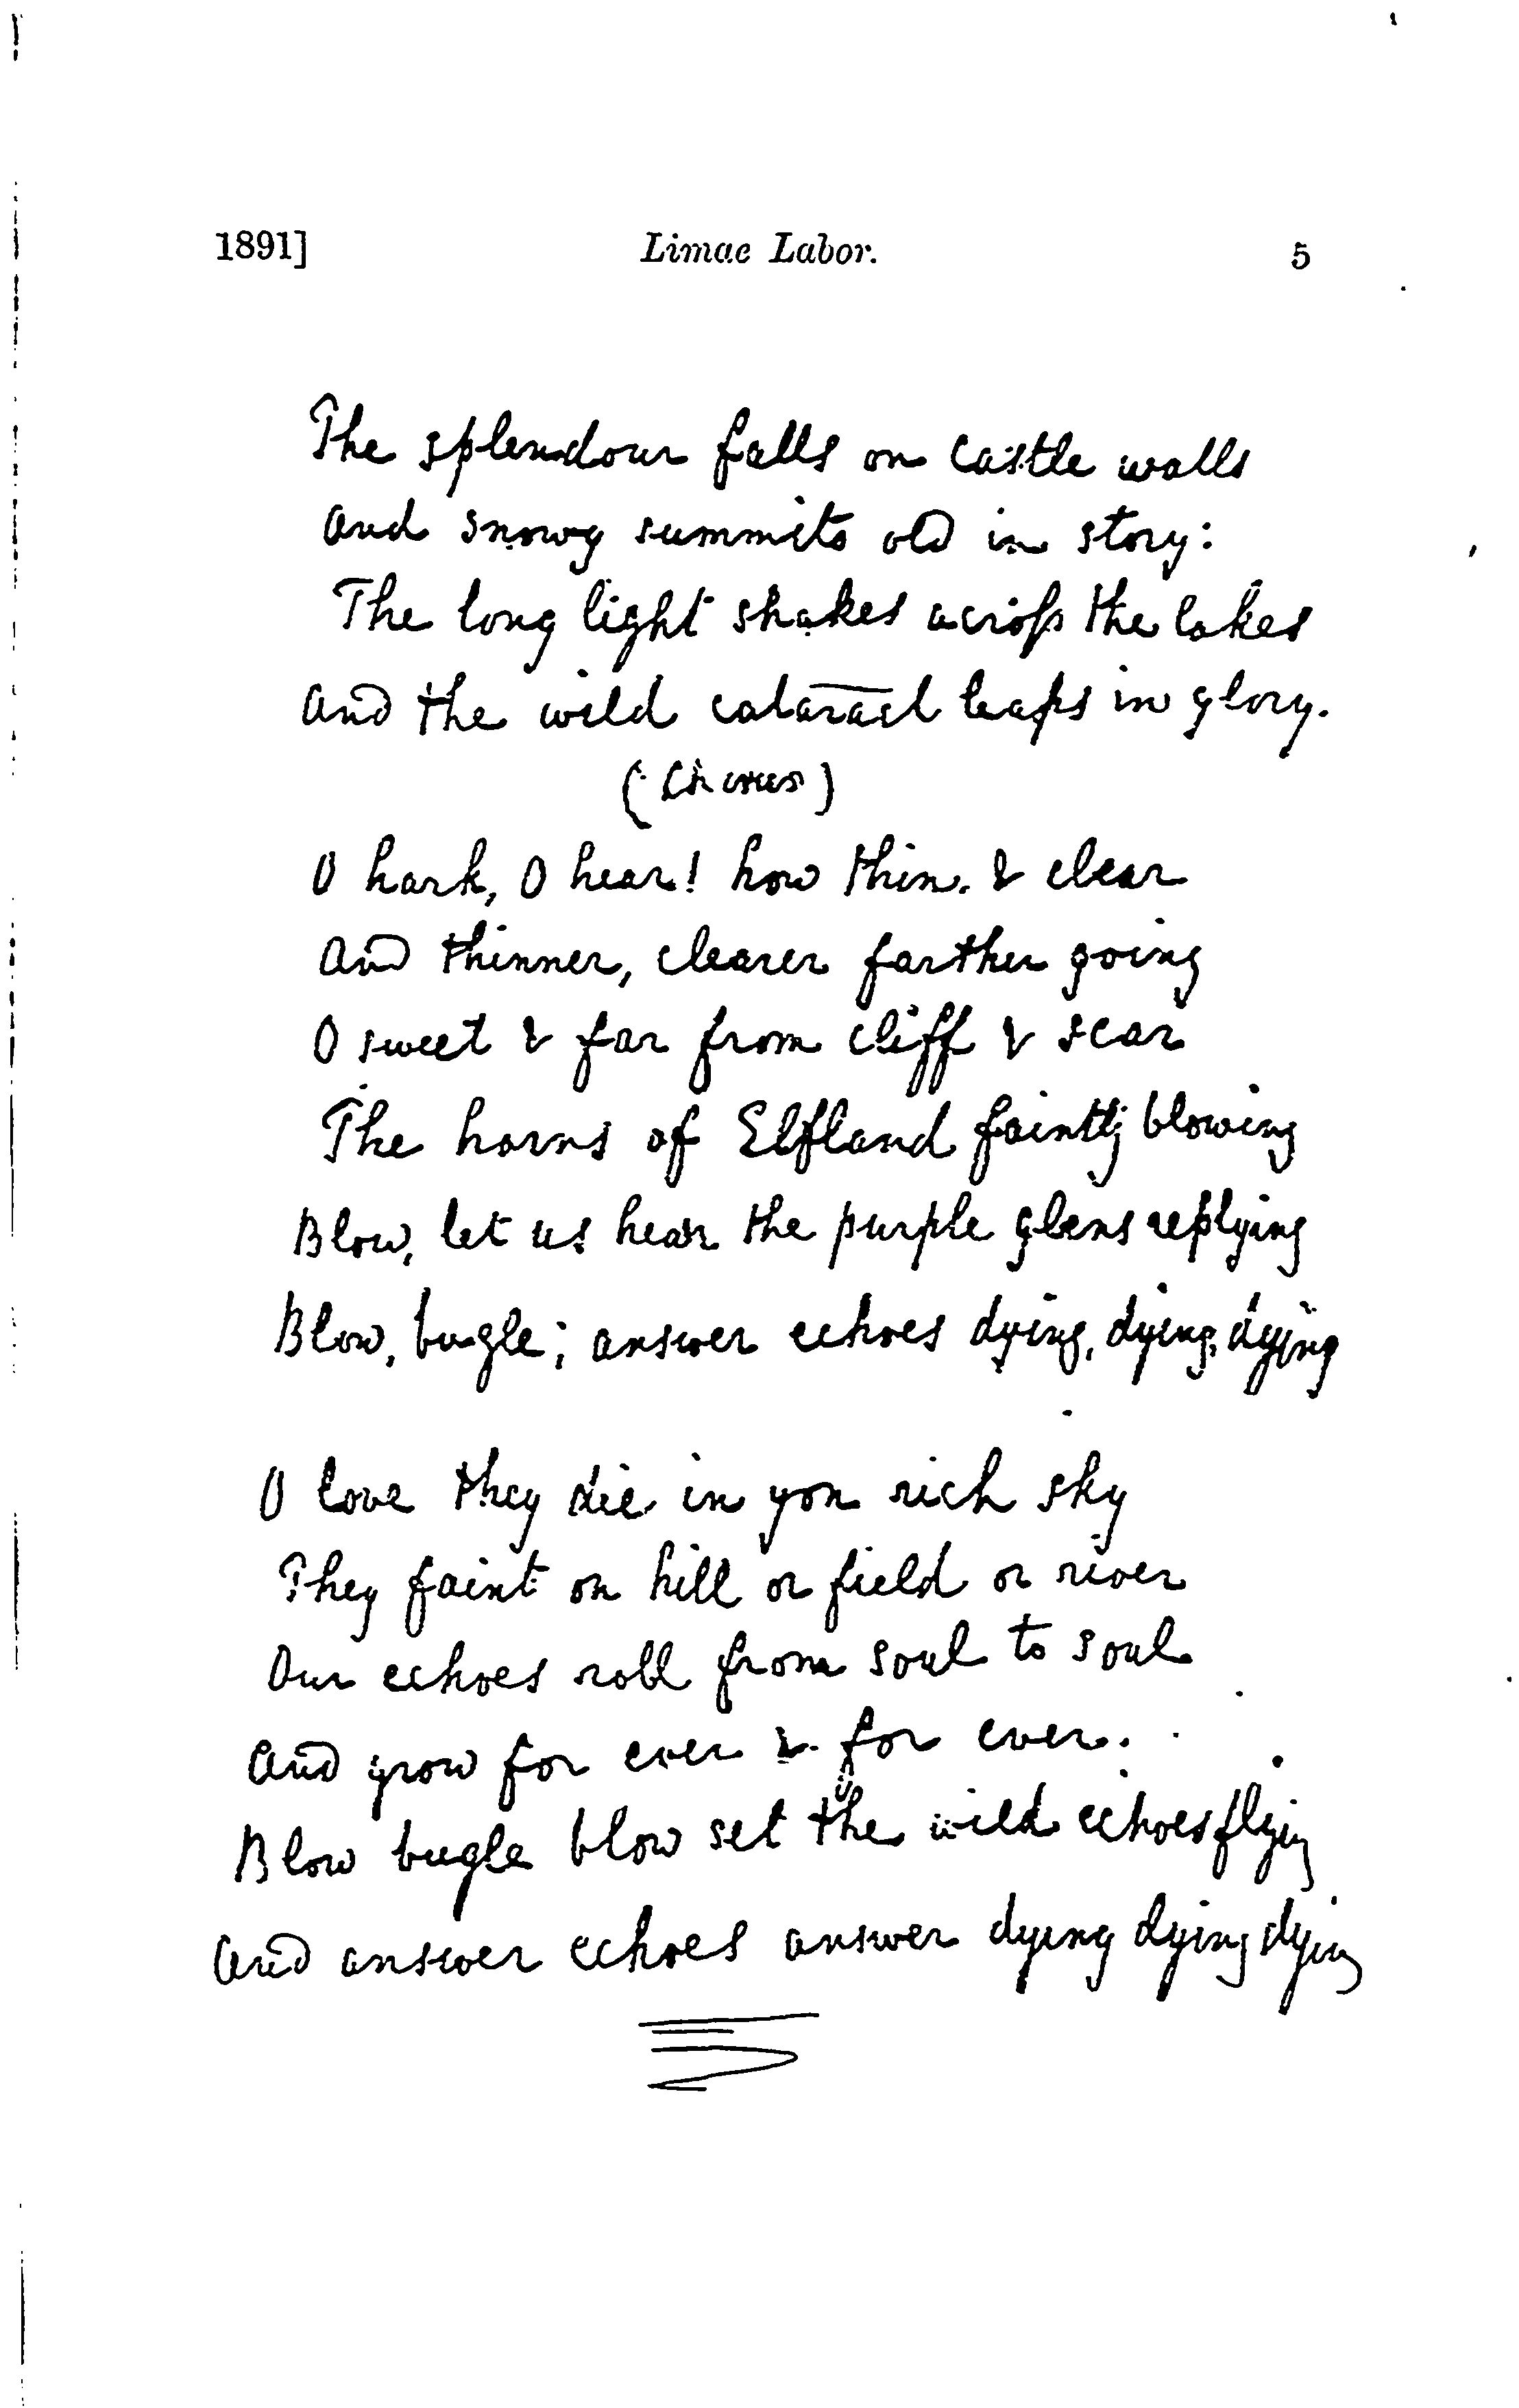 1891] Limae Labor. 5
The splendour falls on castle walls
And snowy summits old in story:
The long light shakes across the lakes
And the wild cataract leaps in glory.
(Chorus)
O hark, O hear! how thin & clear
And thinner, clearer farther going
O sweet & far from cliff & scar
The horns of Elfland faintly blowing
Blow, let us hear the purple glens replying
Blow, bugle; answer echoes dying, dying, dying
O love they die in yon rich sky
They faint on hill or field or river
Our echoes roll from soul to soul
And grow for ever & for ever.
Blow bugle blow set the wild echoes flying
And answer echoes answer dying dying dying